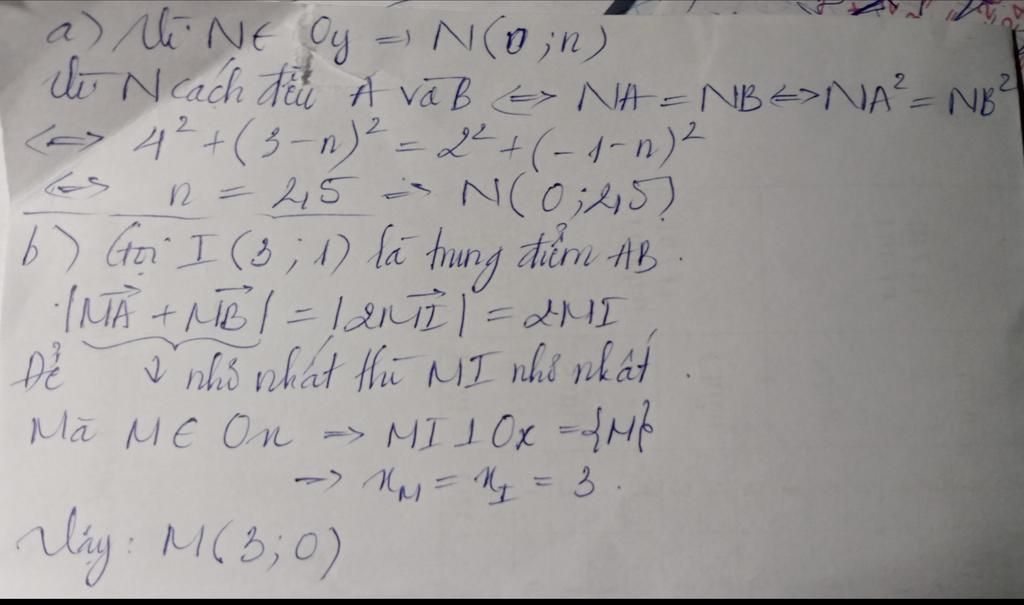 a) Vì N ∈ Oy => N(0;n)
Vì N cách đều A và B <=> NA = NB <=> NA² = NB²
<=> 4² + (3-n)² = 2² + (-1-n)²
<=> n = 2,5 => N(0;2,5)
b) Gọi I(3;1) là trung điểm AB.
|MA→ + MB→| = |2MI→| = 2MI
Để ↓ nhỏ nhất thì MI nhỏ nhất.
Mà M ∈ Ox => MI ⊥ Ox = {M}
=> x_M = x_I = 3.
Vậy: M(3;0)